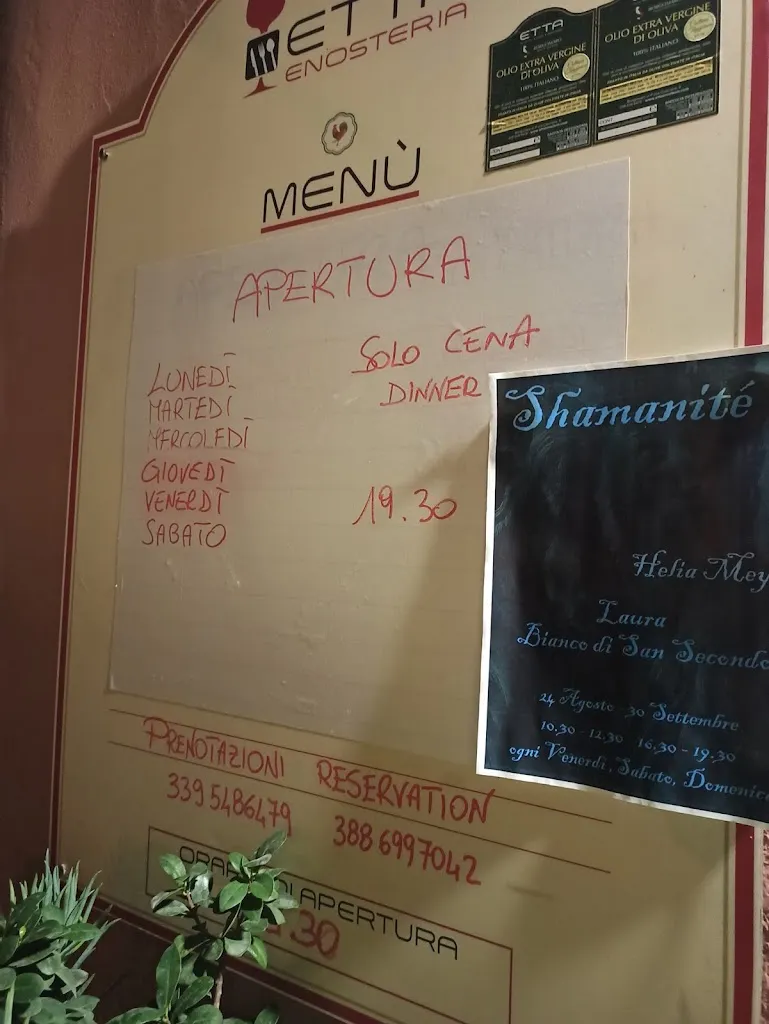 ETTA
ENOSTERIA
ETTA
OLIO EXTRA VERGINE
DI OLIVA
100% ITALIANO
OLIO EXTRA VERGINE
DI OLIVA
100% ITALIANO
MENÙ
APERTURA
LUNEDÌ
MARTEDÌ
MERCOLEDÌ
GIOVEDÌ
VENERDÌ
SABATO
SOLO CENA
DINNER
19.30
Shamanité
Helia Mey
Laura
Bianco di San Secondo
24 Agosto - 30 Settembre
10,30 - 12,30 16,30 - 19,30
ogni Venerdì, Sabato, Domenica
PRENOTAZIONI RESERVATION
339 5486479 388 6997042
APERTURA
30